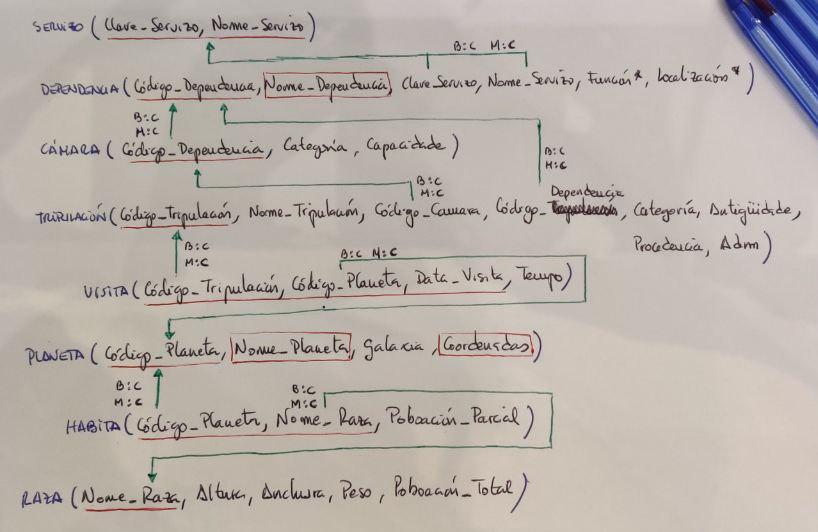 SERVIZO (Clave_Servizo, Nome_Servizo)
B:C M:C
DEPENDENCIA (Código_Dependencia, Nome_Dependencia, Clave_Servizo, Nome_Servizo, Función*, Localización*)
B:C
M:C
CÁMARA (Código_Dependencia, Categoría, Capacidade)
B:C
M:C
B:C
M:C
Dependencia
TRIPILACIÓN (Código_Tripulación, Nome_Tripulación, Código_Camara, Código_, Categoría, Antigüidade,
Procedencia, Adm)
B:C
M:C
B:C M:C
VISITA (Código_Tripulación, Código_Planeta, Data_Visita, Tempo)
PLANETA (Código_Planeta, Nome_Planeta, Galaxia, Coordenadas)
B:C
M:C
B:C
M:C
HABITA (Código_Planeta, Nome_Raza, Poboación_Parcial)
RAZA (Nome_Raza, Altura, Anchura, Peso, Poboación_Total)